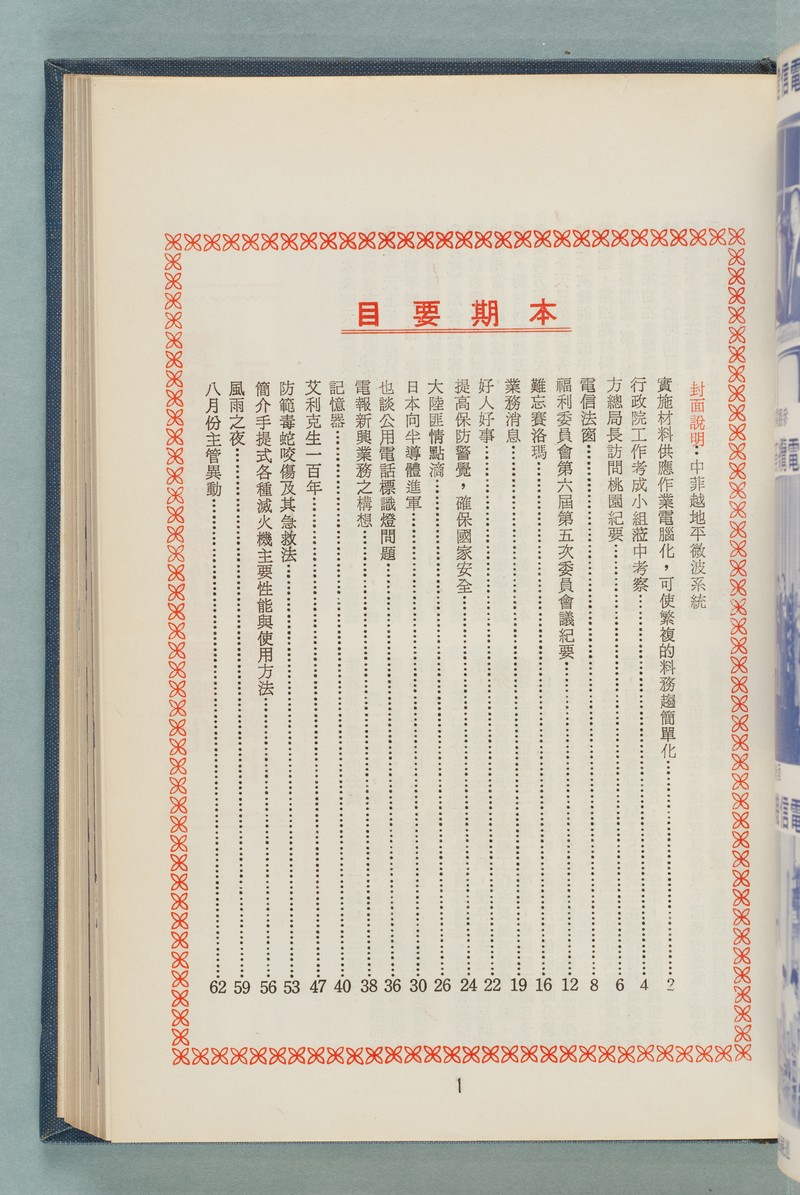 本期要目
封面說明：中菲越地平微波系統
實施材料供應作業電腦化，可使繁複的料務趨簡單化……2
行政院工作考成小組蒞中考察……4
方總局長訪問桃園紀要……6
電信法窗……8
福利委員會第六屆第五次委員會議紀要……12
難忘賽洛瑪……16
業務消息……19
好人好事……22
提高保防警覺，確保國家安全……24
大陸匪情點滴……26
日本向半導體進軍……30
也談公用電話標識燈問題……36
電報新興業務之構想……38
記憶器……40
艾利克生一百年……47
防範毒蛇咬傷及其急救法……53
簡介手提式各種滅火機主要性能與使用方法……56
風雨之夜……59
八月份主管異動……62
1